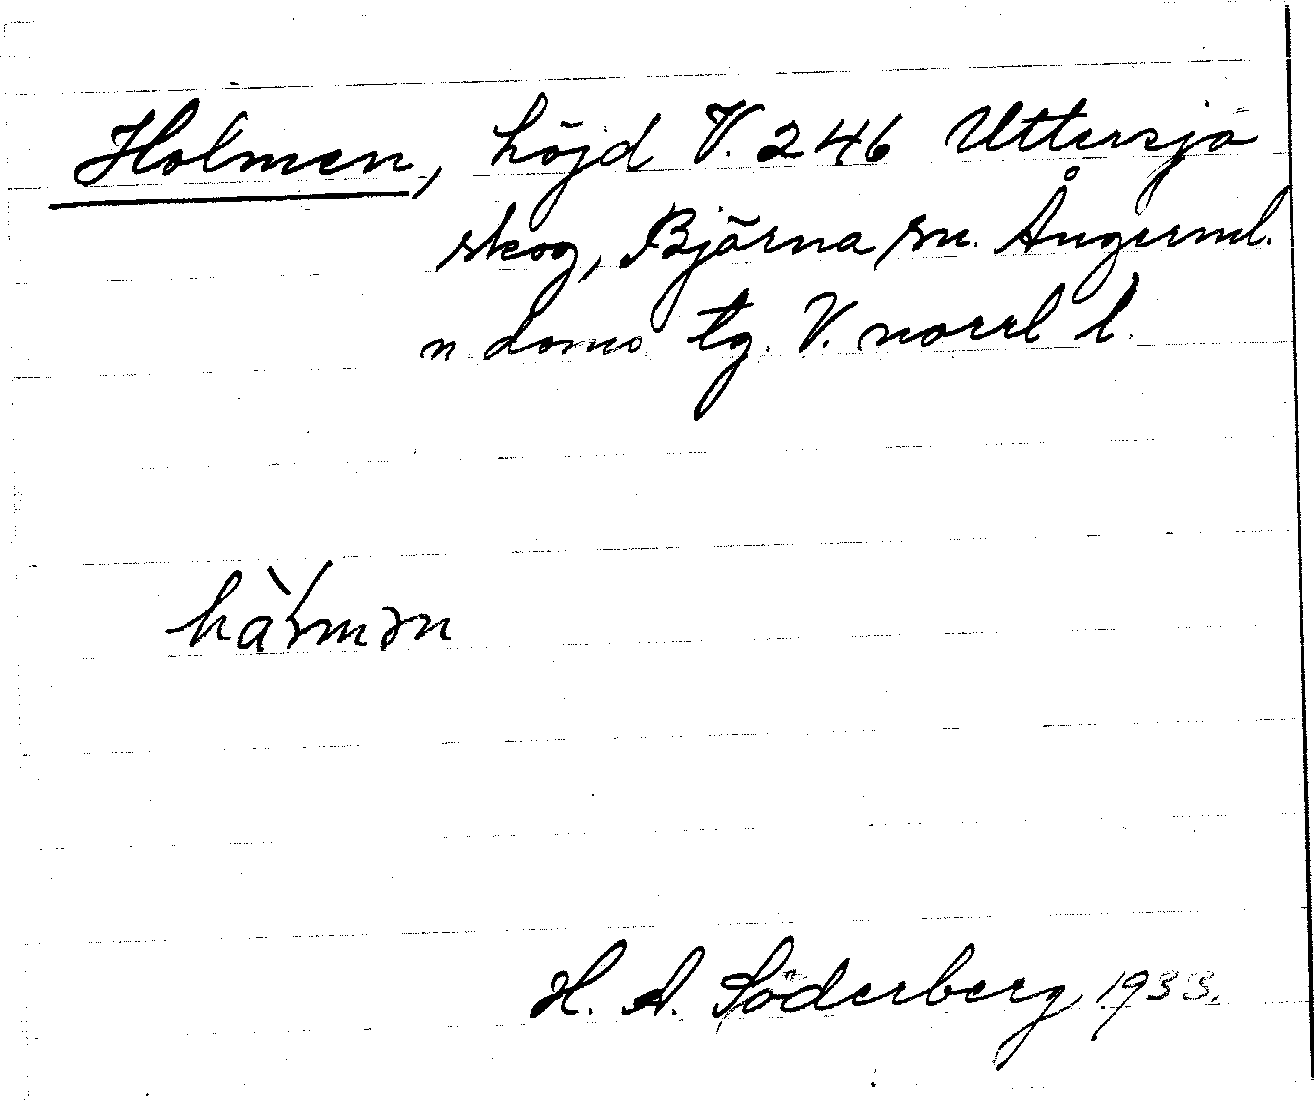 Holmen, höjd V. 246 Uttersjö
skog, Björna sn. Ångerml.
n. doms tg. V. norrl l.
H. A. Söderberg 1933.